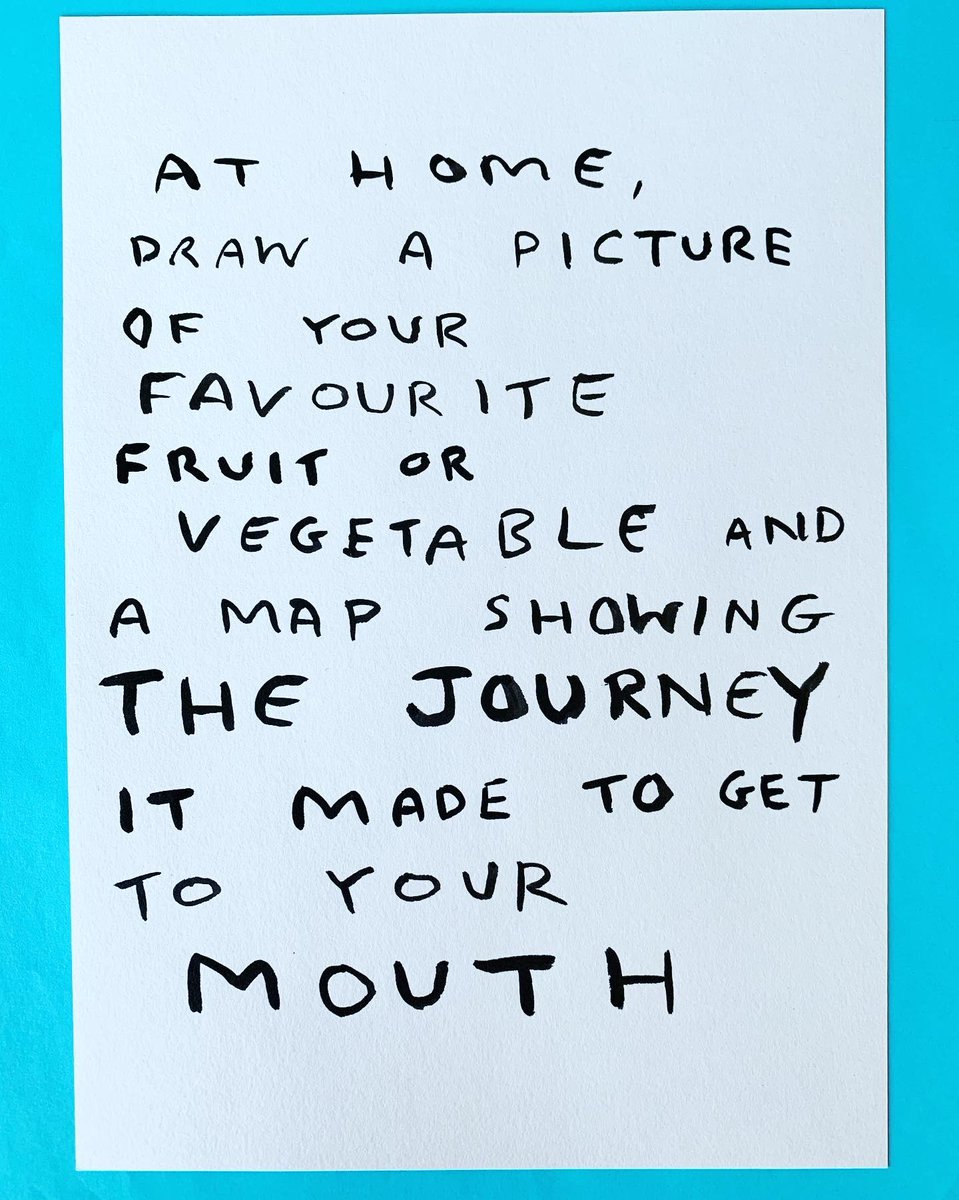 AT HOME,
DRAW A PICTURE
OF YOUR
FAVOURITE
FRUIT OR
VEGETABLE AND
A MAP SHOWING
THE JOURNEY
IT MADE TO GET
TO YOUR
MOUTH